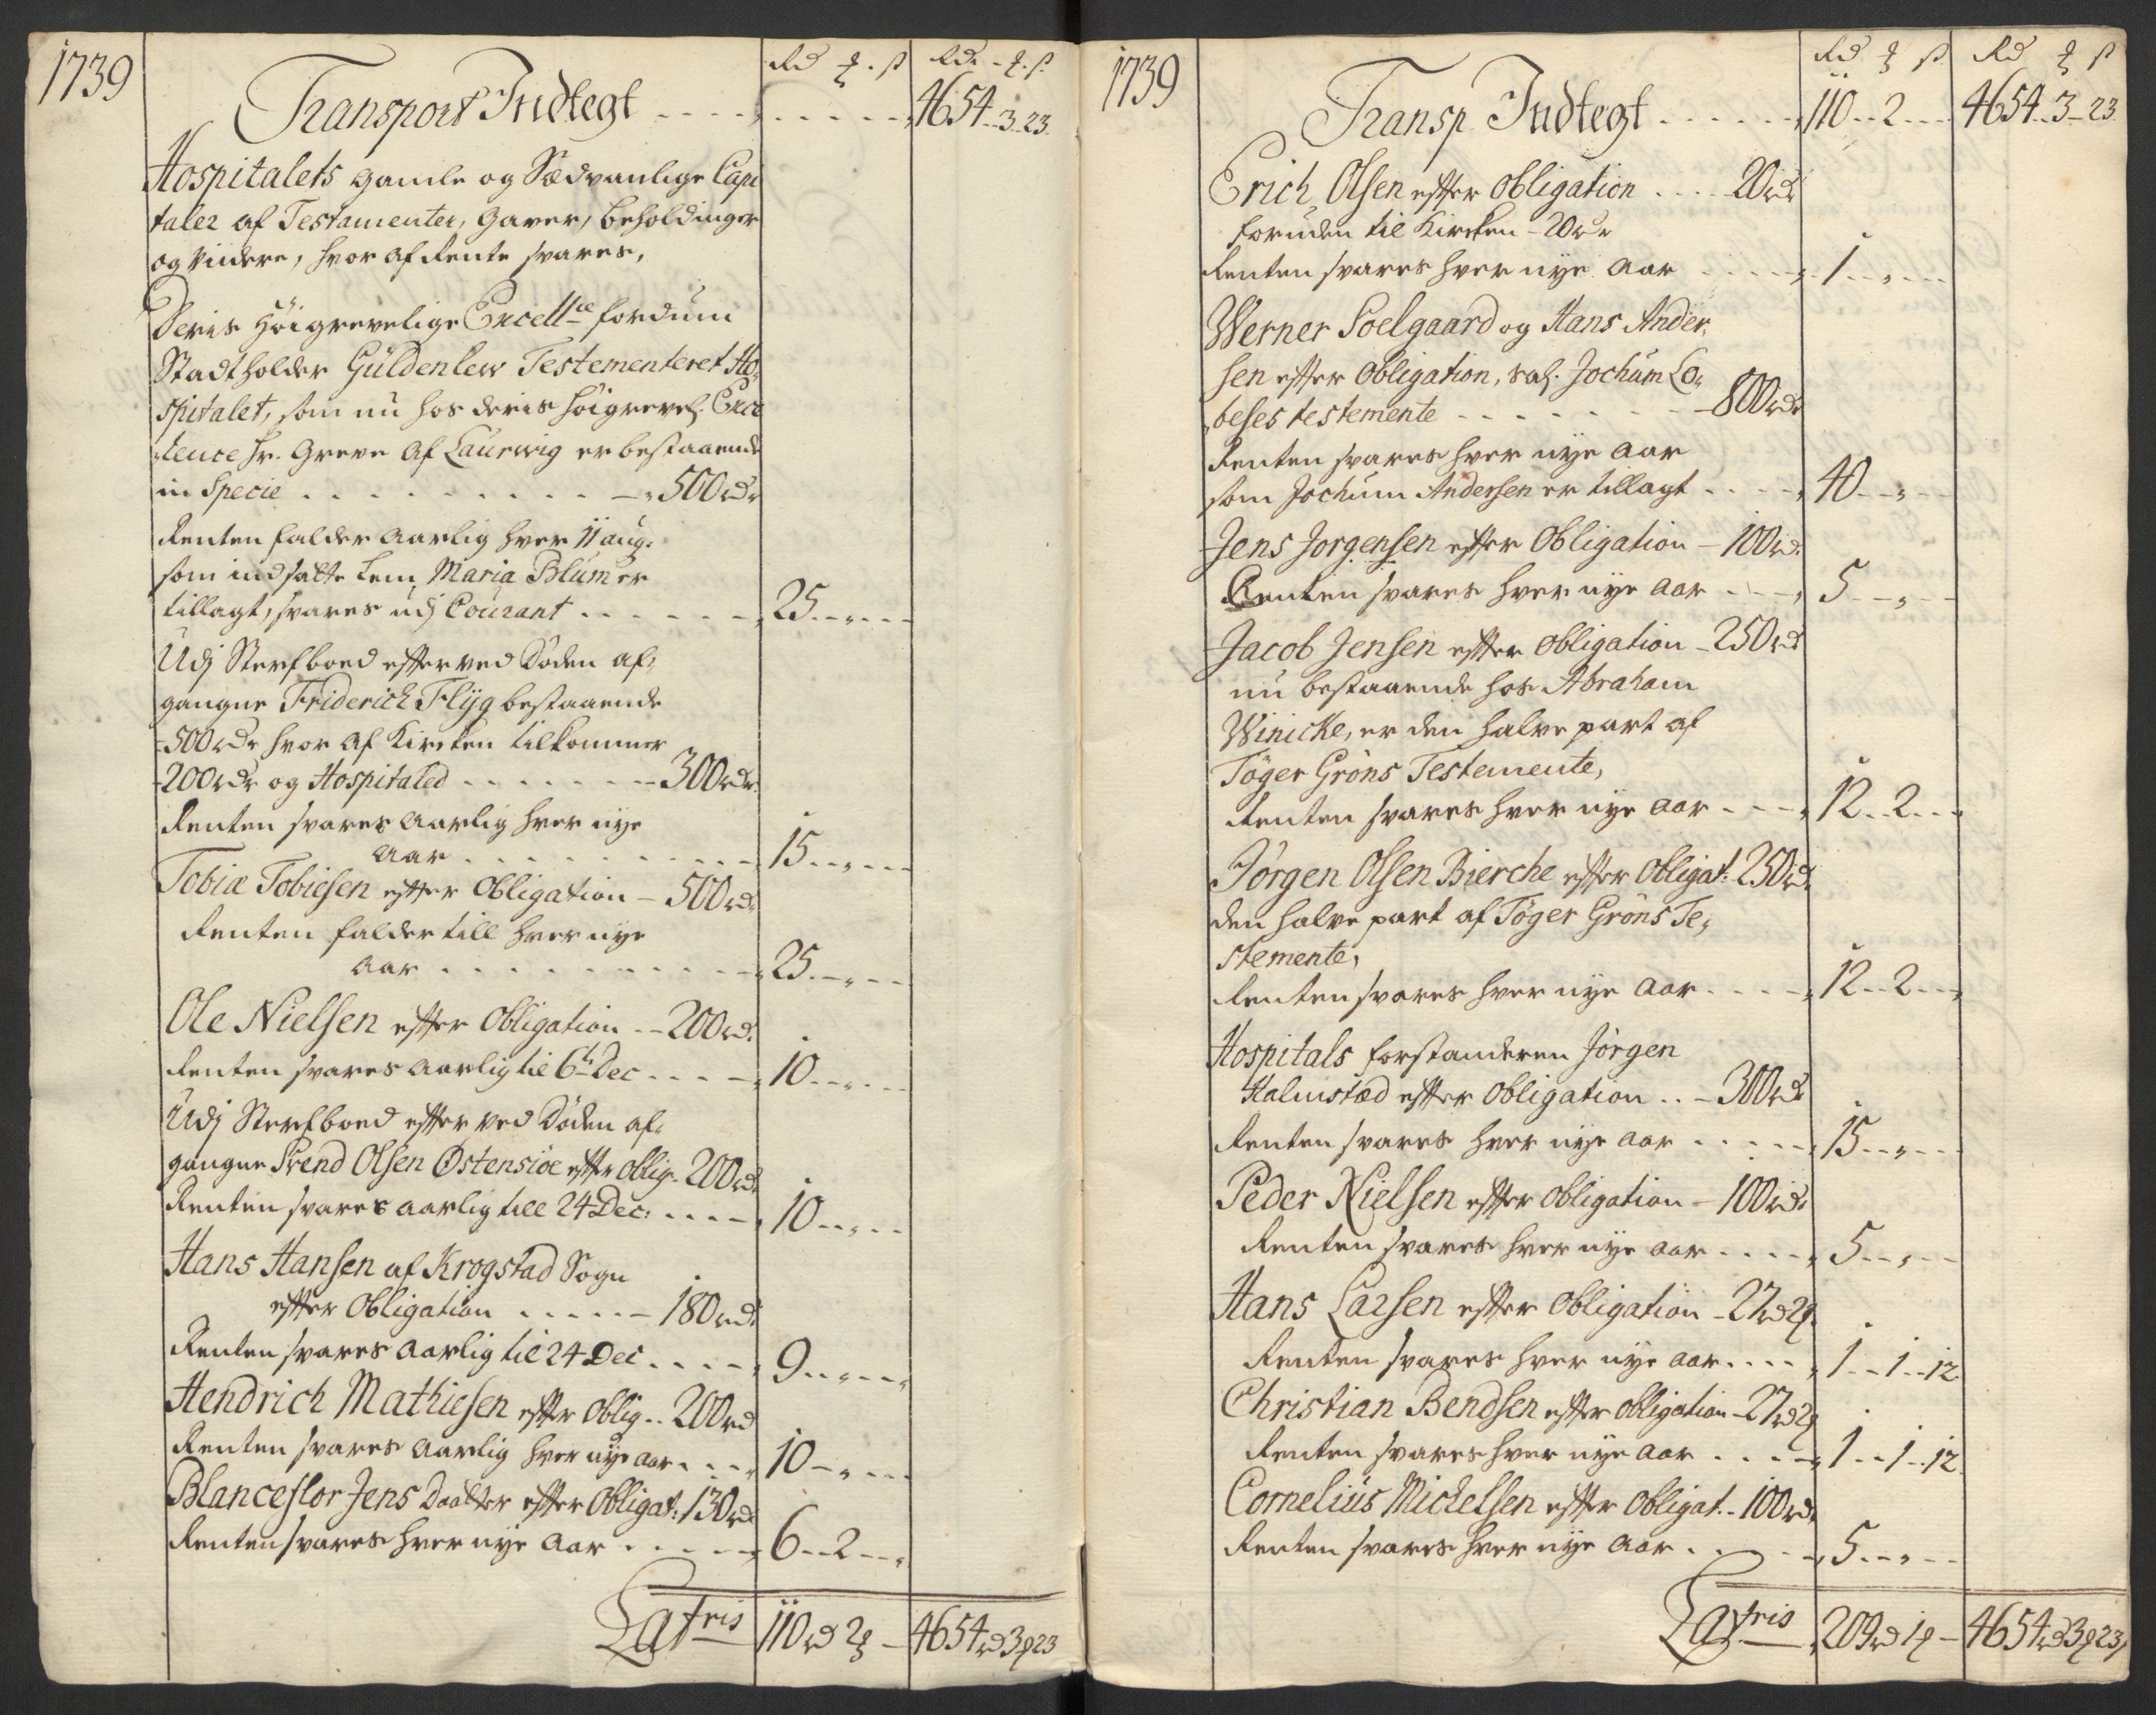 1739
Rd ꝗ ß Rd ꝗ ß
Transport Indtegt 4654 .. 3 .. 23
Hospitalets gamle og Sædvanlige Capi
taler af Testamenter, Gaver, beholdinger
og Viidere, hvor af Rente svares,
Deris Höigrevelige Excellce fordum
Stadtholder Güldenlew Testementeret Ho,
spitalet, som nu hos deris höigrevel. Exce
lence Hr. Greve af Laurwig er bestaaende
in Specie - 500 rdr
Renten falder aarlig hver 11 aug.
som indsatte Lem Maria Blum er
tillagt, svares udj Courant 25
Udj Sterfboed efter ved Døden af,
gangne Friderich Flÿg bestaaende
500 rdr hvor af Kircken tilkommer
200 rdr og Hospitaled - 300 rdr
Renten svares aarlig hver nye
aar 15
Tobiæ Tobiesen efter Obligation - 500 rd
Renten falder till hver nye
aar 25
Ole Nielsen efter Obligation - 200 rd
Renten svares aarlig til 6te Dec 10
Udj Sterfboed efter ved Døden af,
gangne Svend Olsen Østensiøe efter oblig. 200 rd
Renten svares aarlig till 24 Dec: 10
Hans Hansen af Krogstad Sogn
efter Obligation - 180 rd
Renten svares aarlig til 24 Dec 9
Hendrich Mathiesen efter oblig .. 200 rd
Renten svares aarlig hver nye aar 10
Blanceflor Jens Daatter efter Obligat: 130 rd
Renten svares hver nye aar 6 .. 2
Latris 110 rd 2ꝗ - 4654 rd 3ꝗ 23
1739
Rd ꝗ ß Rd ꝗ ß
Transp Indtegt 110 .. 2 4654 .. 3 .. 23
Erich Olsen efter obligation 20 rd
foruden til Kircken - 20 rdr
Renten svares hver nye aar 1
Werner Soelgaard og Hans Ander,
sen efter Obligation, sal. Jochum Lo,
beses testemente - 800 rdr
Renten svares hver nye aar
som Jochum Andersen er tillagt 40
Jens Jorgensen efter Obligation - 100 rd
Renten svares hver nye aar 5
Jacob Jensen efter obligation - 250 rd
nu bestaaende hos Abraham
Winicke, er den halve part af
Töger Gröns Testemente,
Renten svares hver nye aar 12 .. 2
Jörgen Olsen Bierche efter Obligat: 250 rd
den halve part af Töger Gröns Te,
stemente,
Renten svares hver nye aar 12 .. 2
Hospitals forstanderen Jörgen
Halmstæd efter Obligation - 300 rd
Renten svares hver nye aar 15
Peder Nielsen efter obligation - 100 rd
Renten svares hver nye aar 5
Hans Larsen efter obligation - 27 rd 2ꝗ
Renten svares hver nye aar 1 .. 1 .. 12
Christian Bendsen efter obligation - 27 rd 2ꝗ
Renten svares hver nye aar 1 .. 1 .. 12
Cornelius Michelsen efter obligat. - 100 rd
Renten svares hver nye aar 5
Latris 209 rd 1ꝗ - 4654 rd 3ꝗ 23